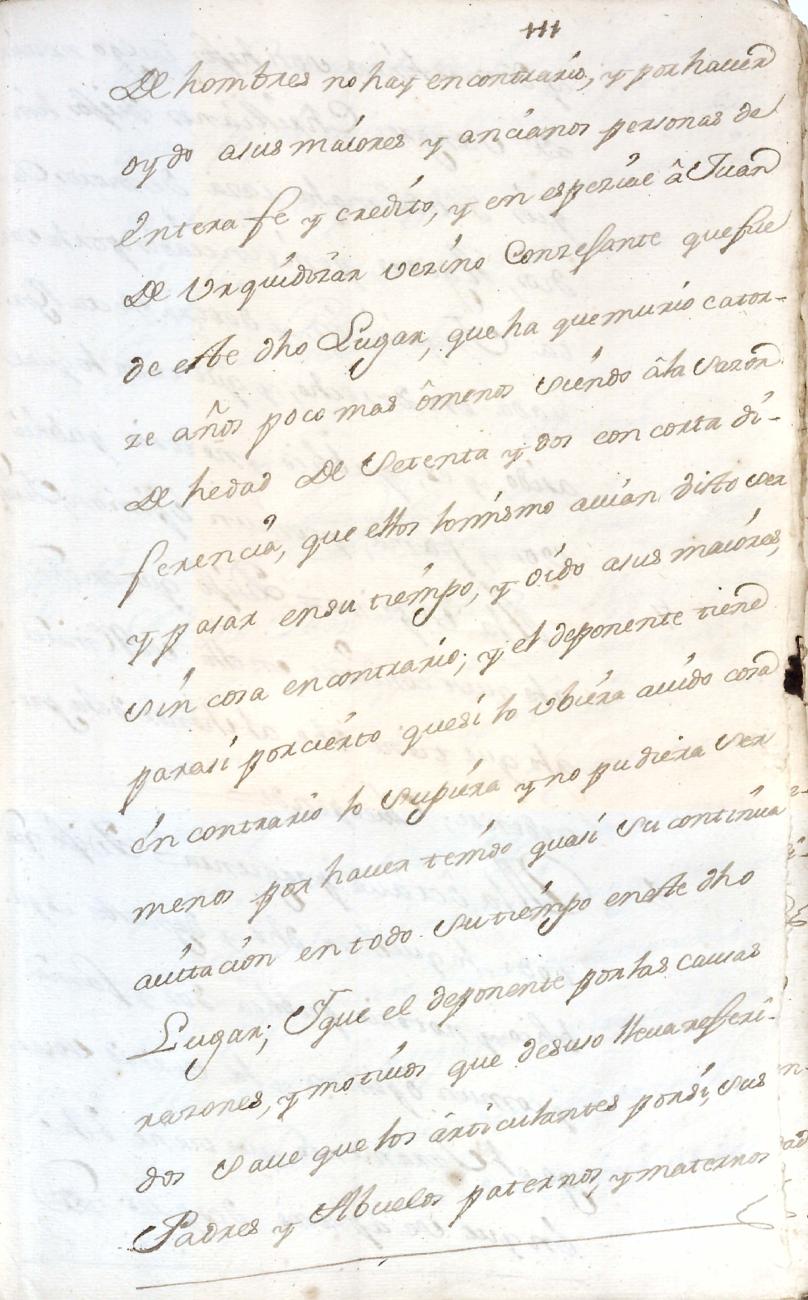 De hombres no hay encontrario, y por haver
oydo asus maiores y ancianos personas de
entera fe y credito, y en espezial â Juan
De Urquidizar vezino Conzesante que fue
de este dho Lugar, que ha que murio cator-
ze años poco mas ô menos siendo âla sazon
De hedad De Setenta y dos con corta di-
ferencia, que ellos lo mismo avian visto ser
y pasar ensu tiempo, y oido asus maiores,
sin cosa encontrario; y el deponente tiene
parasi porcierto quesi lo ubiera avido cosa
en contrario lo supiera y no pudiera ser
menos por haver tenido quasi su continua
avitacion en todo su tiempo eneste dho
Lugar; Y que el deponente por las causas
razones, y motivos que desuso lleva referi-
dos save que los articulantes porsi, sus
Padres y Abuelos paternos, y maternos